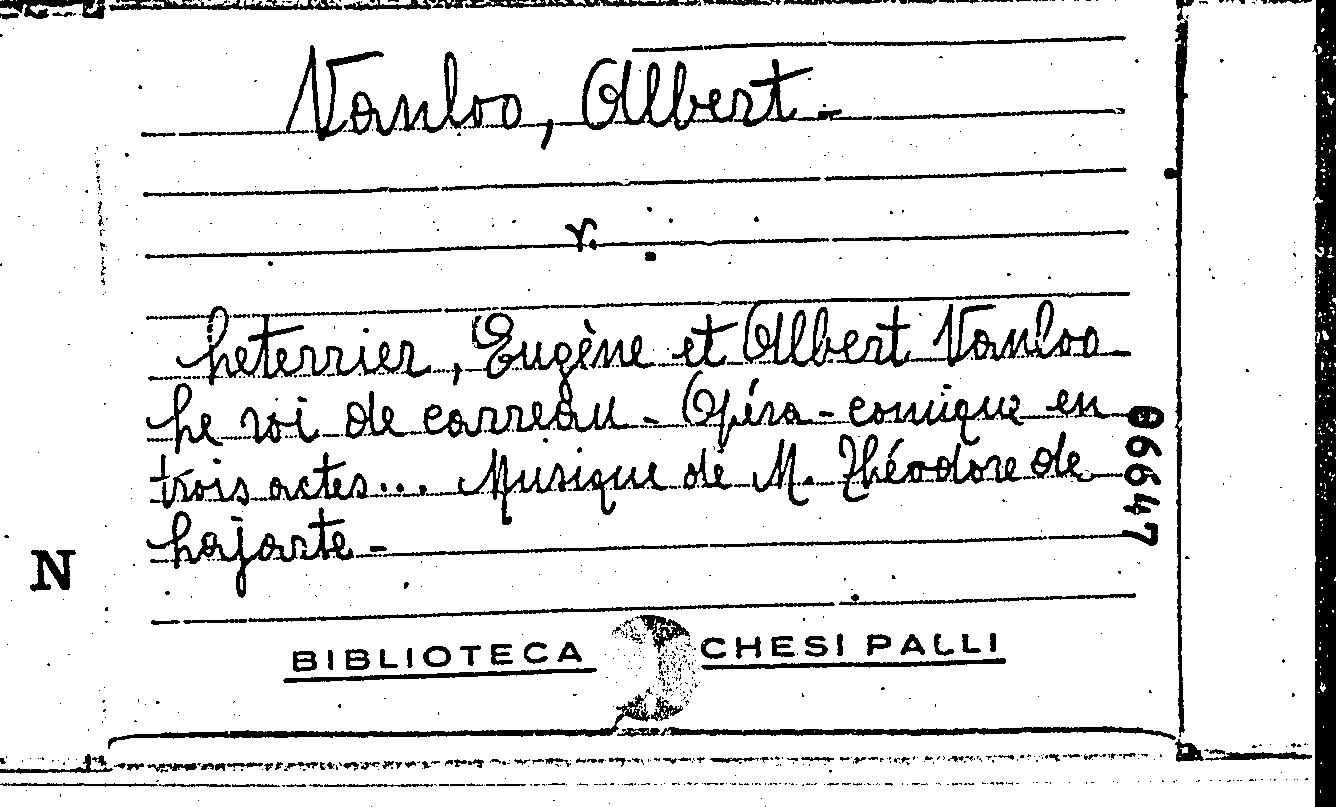 Vanloo, Albert.-
v.
Leterrier, Eugène et Albert Vanloo
Le roi de carreau - Opéra-comique en
trois actes... Musique de M. Théodore de
Lajarte -
06647
N
BIBLIOTECA CHESI PALLI